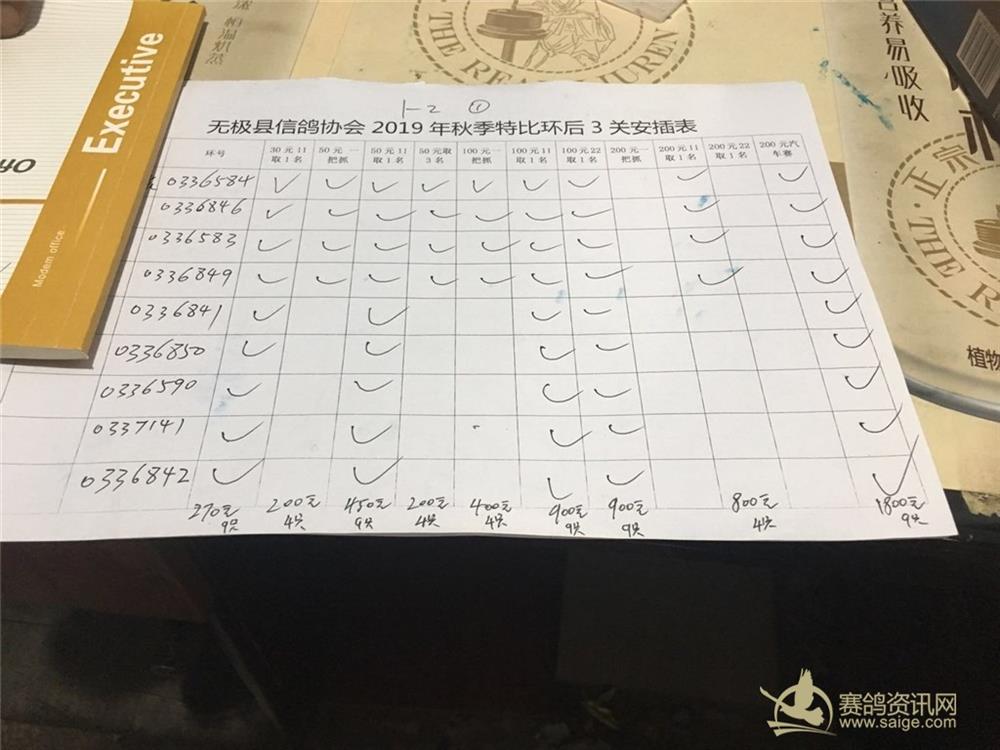 Executive
Modern office
40
THE REAL
HUREN
营养易吸收
正宗
THE
植物
1-2 ①
无极县信鸽协会 2019 年秋季特比环后 3 关安插表
环号 30元11取1名 50元一把抓 50元11取1名 50元取3名 100元一把抓 100元11取1名 100元22取1名 200元一把抓 200元11取1名 200元22取1名 200元汽车赛
0336584 ✓ ✓ ✓ ✓ ✓ ✓ ✓ ✓ ✓
0336846 ✓ ✓ ✓ ✓ ✓ ✓ ✓ ✓ ✓
0336583 ✓ ✓ ✓ ✓ ✓ ✓ ✓ ✓ ✓
0336849 ✓ ✓ ✓ ✓ ✓ ✓ ✓ ✓ ✓
0336841 ✓ ✓ ✓ ✓ ✓
0336850 ✓ ✓ ✓ ✓ ✓
0336590 ✓ ✓ ✓ ✓ ✓
0337141 ✓ ✓ ✓ ✓ ✓
0336842 ✓ ✓ ✓ ✓ ✓
270元 200元 450元 200元 400元 900元 900元 800元 1800元
9只 4只 9只 4只 4只 9只 9只 4只 9只
赛鸽资讯网
www.saige.com